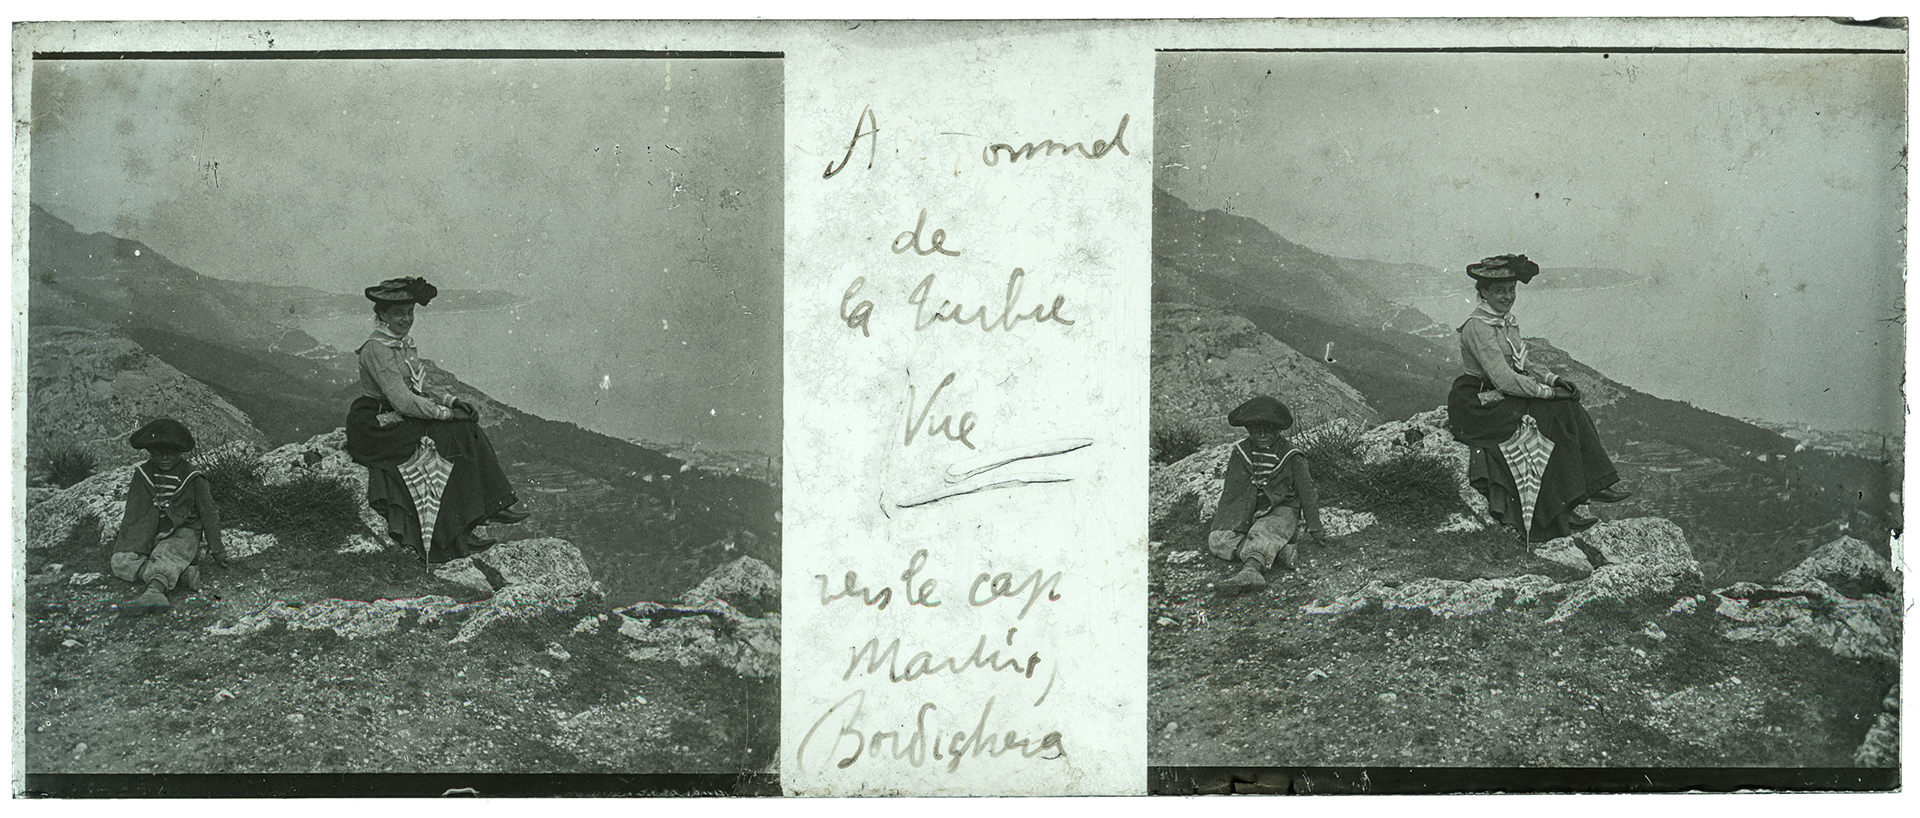 A ommet
de
la Turbie
Vue
vers le cap
Martin,
Bordighera